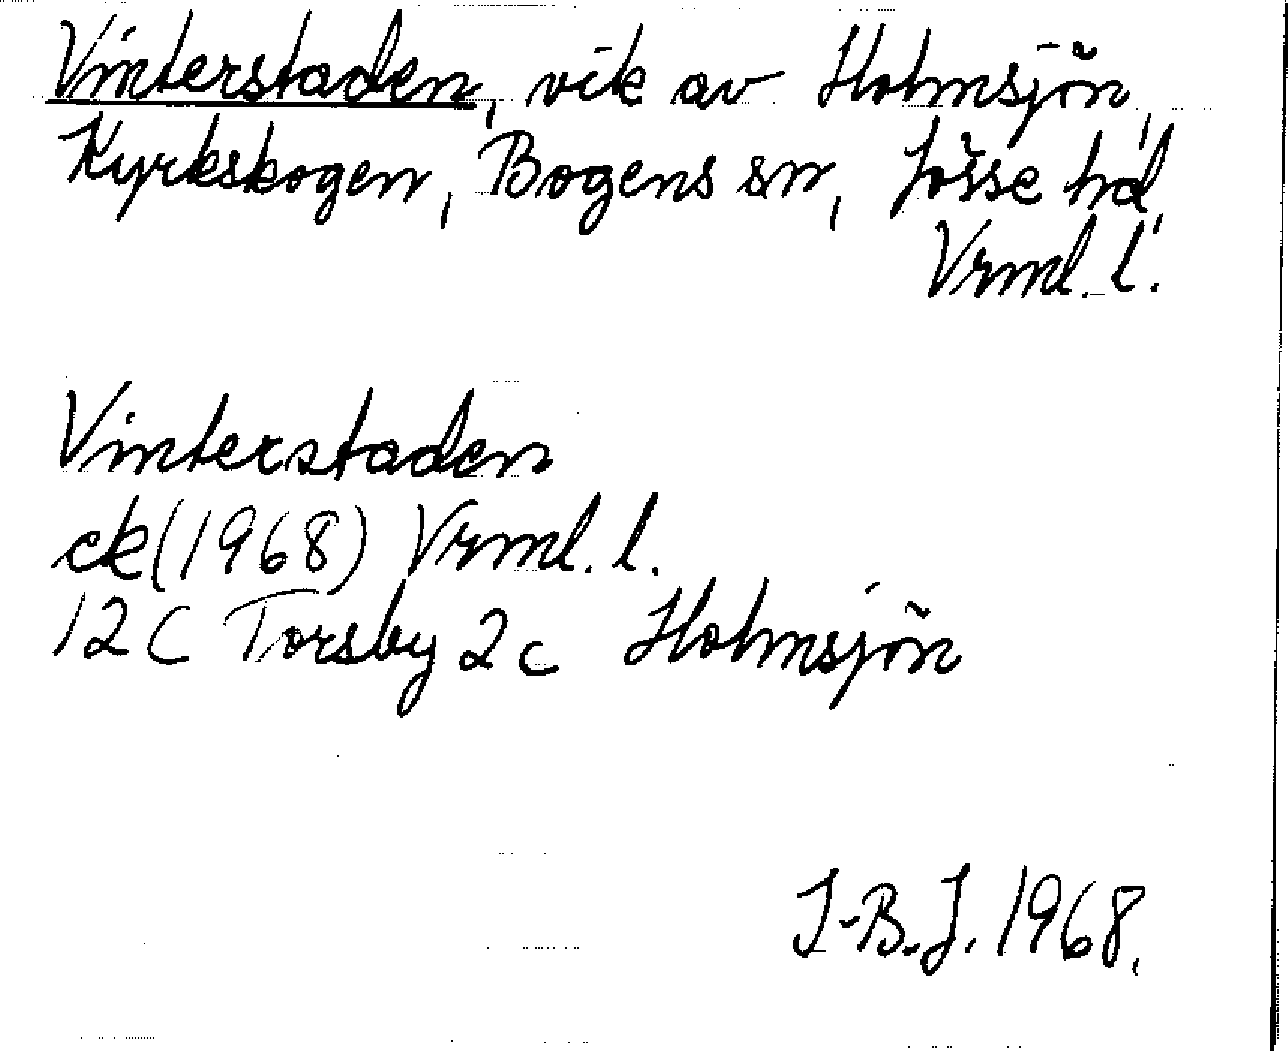 Vinterstaden, vik av Holmsjön,
Kyrkskogen, Bogens sn, Jösse hd,
Vrml. l.
Vinterstaden
ek (1968) Vrml. l.
12C Torsby 2c Holmsjön
I-B.J. 1968.